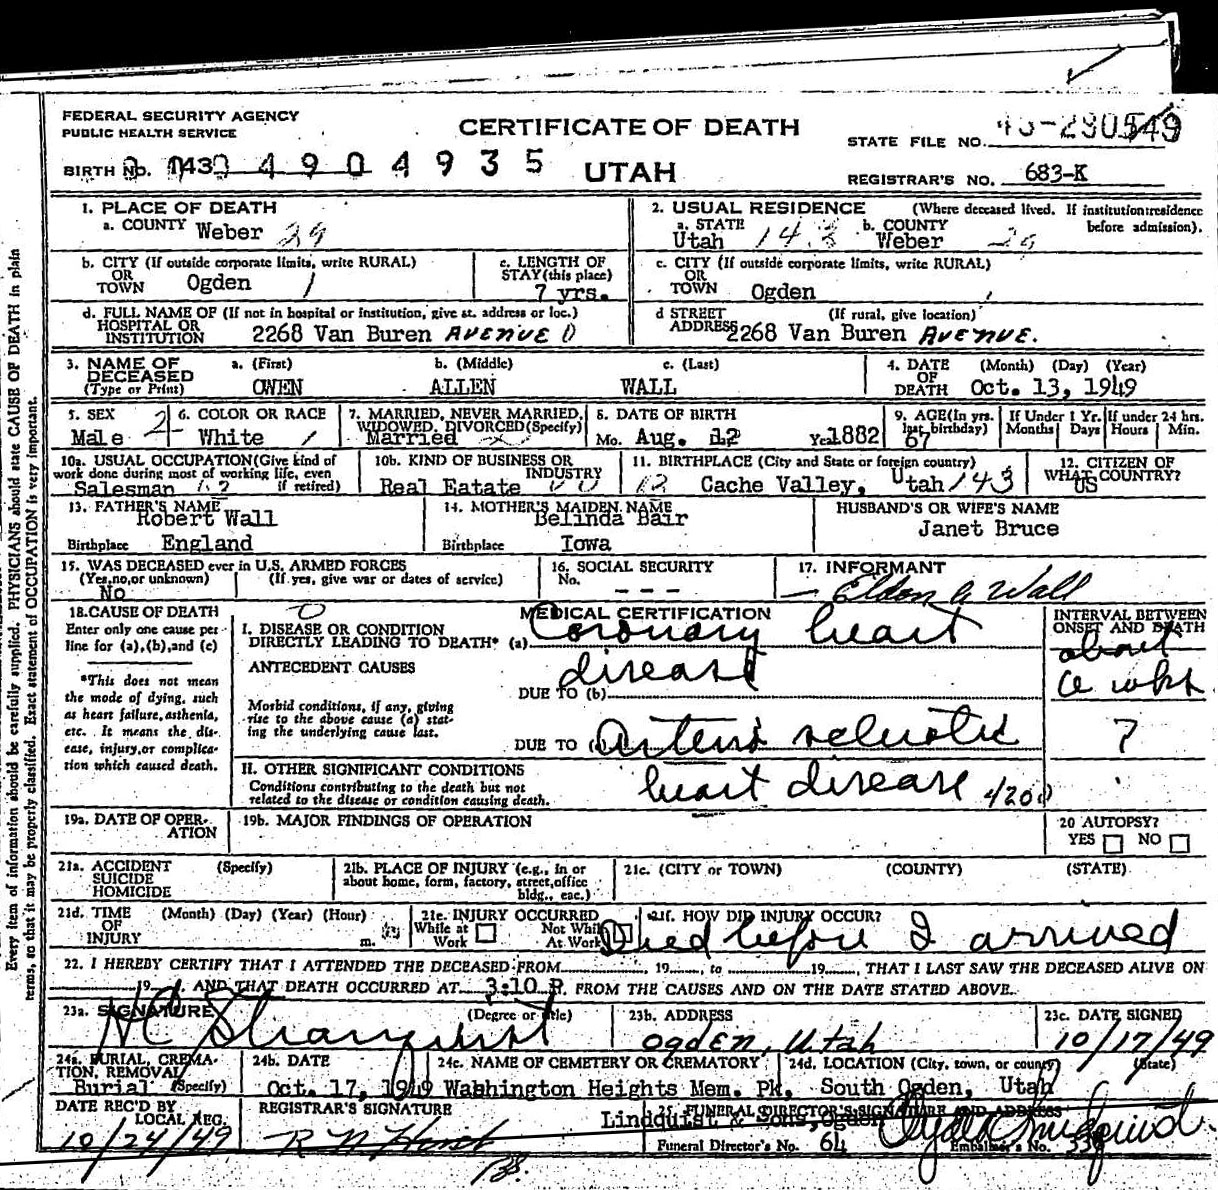 FEDERAL SECURITY AGENCY
PUBLIC HEALTH SERVICE
CERTIFICATE OF DEATH
STATE FILE NO.
BIRTH No. 4904935
UTAH
REGISTRAR'S NO. 683-K
1. PLACE OF DEATH
a. COUNTY Weber 29
2. USUAL RESIDENCE (Where deceased lived. If institution: residence before admission).
a. STATE Utah b. COUNTY Weber
b. CITY (If outside corporate limits, write RURAL)
OR TOWN Ogden 1
c. LENGTH OF STAY (this place)
7 yrs.
c. CITY (If outside corporate limits, write RURAL)
OR TOWN Ogden
d. FULL NAME OF (If not in hospital or institution, give st. address or loc.)
HOSPITAL OR INSTITUTION 2268 Van Buren AVENUE
d STREET ADDRESS (If rural, give location)
2268 Van Buren AVENUE.
3. NAME OF DECEASED (Type or Print)
a. (First) b. (Middle) c. (Last)
OWEN ALLEN WALL
4. DATE OF DEATH (Month) (Day) (Year)
Oct. 13, 1949
5. SEX Male 2
6. COLOR OR RACE White 1
7. MARRIED, NEVER MARRIED, WIDOWED, DIVORCED (Specify)
Married
8. DATE OF BIRTH
Mo. Aug. 12 Year 1882
9. AGE (In yrs. last birthday) 67
If Under 1 Yr. Months Days
If under 24 hrs. Hours Min.
10a. USUAL OCCUPATION (Give kind of work done during most of working life, even if retired)
Salesman
10b. KIND OF BUSINESS OR INDUSTRY
Real Eatate
11. BIRTHPLACE (City and State or foreign country)
Cache Valley, Utah 143
12. CITIZEN OF WHAT COUNTRY?
US
13. FATHER'S NAME
Robert Wall
Birthplace England
14. MOTHER'S MAIDEN NAME
Belinda Bair
Birthplace Iowa
HUSBAND'S OR WIFE'S NAME
Janet Bruce
15. WAS DECEASED ever in U.S. ARMED FORCES
(Yes, no, or unknown) (If yes, give war or dates of service)
No
16. SOCIAL SECURITY No. - - -
17. INFORMANT
Eldon A Wall
18. CAUSE OF DEATH
Enter only one cause per line for (a), (b), and (c)
*This does not mean the mode of dying, such as heart failure, asthenia, etc. It means the disease, injury, or complication which caused death.
MEDICAL CERTIFICATION
I. DISEASE OR CONDITION
DIRECTLY LEADING TO DEATH* (a) Coronary heart
disease
ANTECEDENT CAUSES
DUE TO (b)
Morbid conditions, if any, giving rise to the above cause (a) stating the underlying cause last.
DUE TO arterio sclerotic
heart disease 420
INTERVAL BETWEEN ONSET AND DEATH
about
6 wks.
?
II. OTHER SIGNIFICANT CONDITIONS
Conditions contributing to the death but not related to the disease or condition causing death.
19a. DATE OF OPERATION
19b. MAJOR FINDINGS OF OPERATION
20 AUTOPSY?
YES NO
21a. ACCIDENT SUICIDE HOMICIDE (Specify)
21b. PLACE OF INJURY (e.g., in or about home, form, factory, street, office bldg., eac.)
21c. (CITY or TOWN) (COUNTY) (STATE)
21d. TIME OF INJURY (Month) (Day) (Year) (Hour) m.
21e. INJURY OCCURRED
While at Work Not While At Work
21f. HOW DID INJURY OCCUR?
Died before I arrived
22. I HEREBY CERTIFY THAT I ATTENDED THE DECEASED FROM 19 , to 19 , THAT I LAST SAW THE DECEASED ALIVE ON
19 , AND THAT DEATH OCCURRED AT 3:10 P. FROM THE CAUSES AND ON THE DATE STATED ABOVE.
23a. SIGNATURE (Degree or title)
23b. ADDRESS
Ogden, Utah
23c. DATE SIGNED
10/17/49
24a. BURIAL, CREMATION, REMOVAL (Specify)
Burial
24b. DATE
Oct. 17, 1949
24c. NAME OF CEMETERY OR CREMATORY
Washington Heights Mem. Pk,
24d. LOCATION (City, town, or county) (State)
South Ogden, Utah
DATE REC'D BY LOCAL REG.
10/24/49
REGISTRAR'S SIGNATURE
25. FUNERAL DIRECTOR'S SIGNATURE AND ADDRESS
Lindquist & Sons, Ogden
Funeral Director's No. 64
Embalmer's No.
Every item of information should be carefully supplied. PHYSICIANS should state CAUSE OF DEATH in plain
terms, so that it may be properly classified. Exact statement of OCCUPATION is very important.